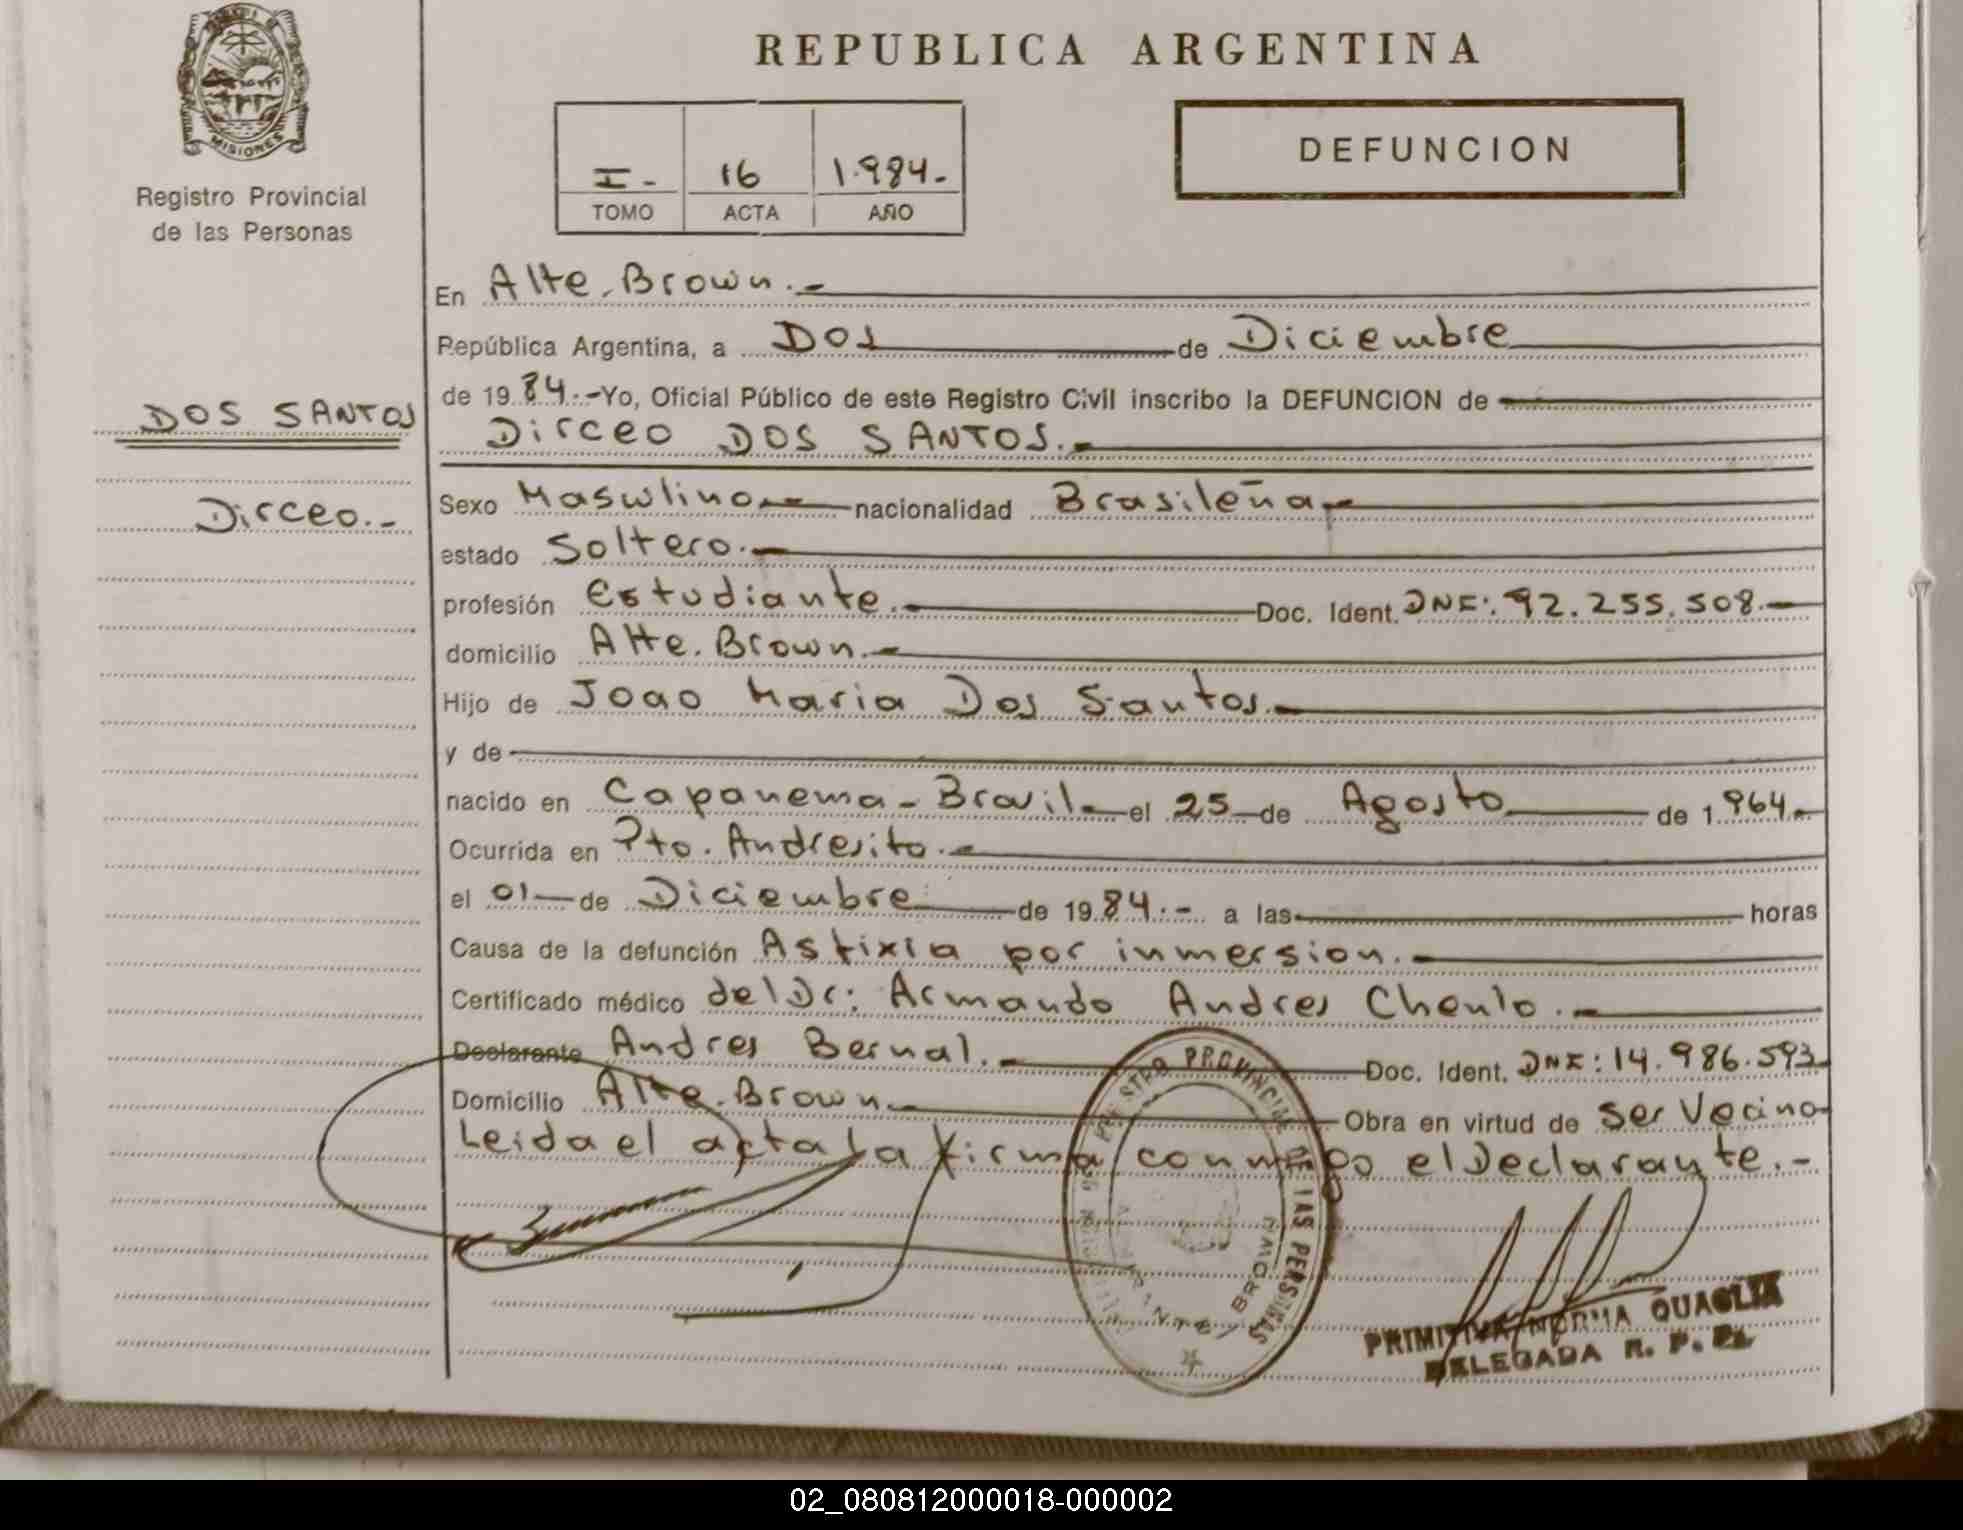 MISIONES
Registro Provincial
de las Personas
REPUBLICA ARGENTINA
DEFUNCION
I.- 16 1.984.-
TOMO ACTA AÑO
En Alte. Brown.-
República Argentina, a Dos de Diciembre
de 19 84.- Yo, Oficial Público de este Registro Civil inscribo la DEFUNCION de
DOS SANTOS
Dirceo DOS SANTOS.-
Dirceo.-
Sexo Masculino.- nacionalidad Brasileña.-
estado Soltero.-
profesión Estudiante.- Doc. Ident. DNI: 92.255.508.-
domicilio Alte. Brown.-
Hijo de Joao Maria Dos Santos.-
y de
nacido en Capanema - Brasil.- el 25 de Agosto de 1.964.-
Ocurrida en Pto. Andresito.-
el 01 de Diciembre de 19 84.- a las horas
Causa de la defunción Asfixia por inmersion.-
Certificado médico del Dr: Armando Andres Chenlo.-
Declarante Andres Bernal.- Doc. Ident. DNI: 14.986.593
Domicilio Alte. Brown.- Obra en virtud de ser Vecino
Leida el acta la firma conmigo el Declarante.-
REGISTRO PROVINCIAL DE LAS PERSONAS
ALMIRANTE BROWN
PRIMITIVA NORMA QUAGLIA
DELEGADA R. P. P.
02_080812000018-000002